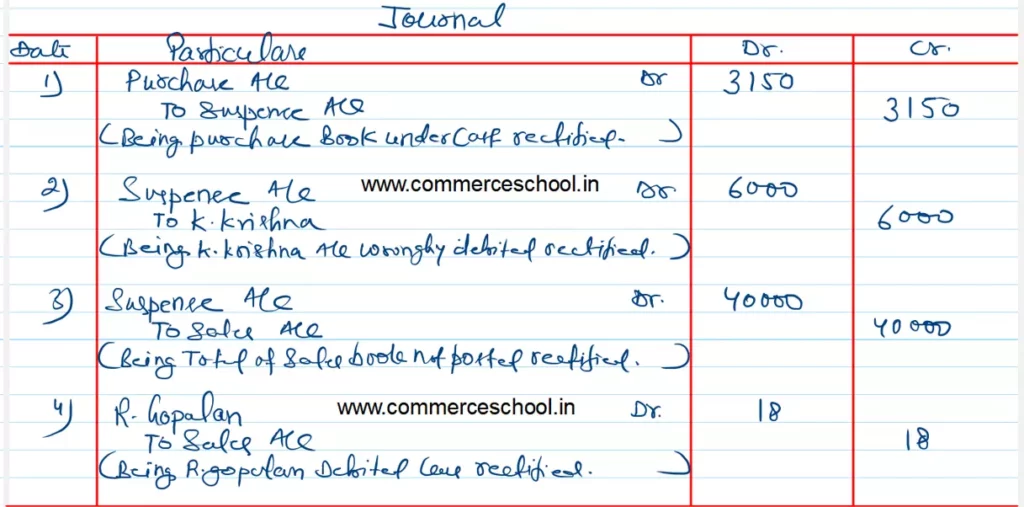 Journal
Date Particulars Dr. Cr.
1) Purchase A/C Dr 3150
To Suspense A/C 3150
(Being purchase Book undercast rectified.)
2) Suspense A/C www.commerceschool.in Dr 6000
To K. Krishna 6000
(Being K. Krishna A/C wrongly debited rectified.)
3) Suspense A/C Dr. 40000
To Sales A/C 40000
(Being Total of Sales book not posted rectified.)
4) R. Gopalan www.commerceschool.in Dr. 18
To Sales A/C 18
(Being R. gopalan Debited less rectified.)